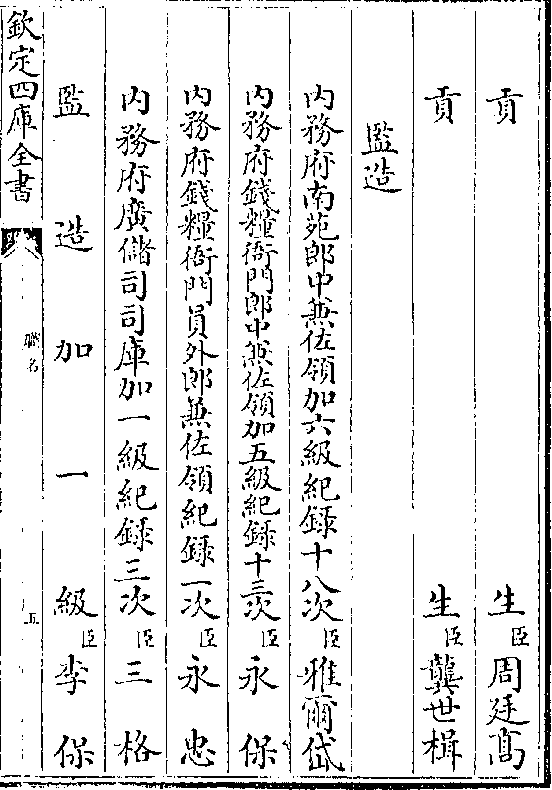 貢生臣周廷髙
貢生臣龔世楫
監造
内務府南苑郎中兼佐領加六級紀録十八次臣雅爾岱
内務府錢糧衙門郎中兼佐領加五級紀録十三次臣永保
内務府錢糧衙門員外郎兼佐領紀録一次臣永忠
内務府廣儲司司庫加一級紀録三次臣三格
監造加一級臣李保
欽定四庫全書
職名
五